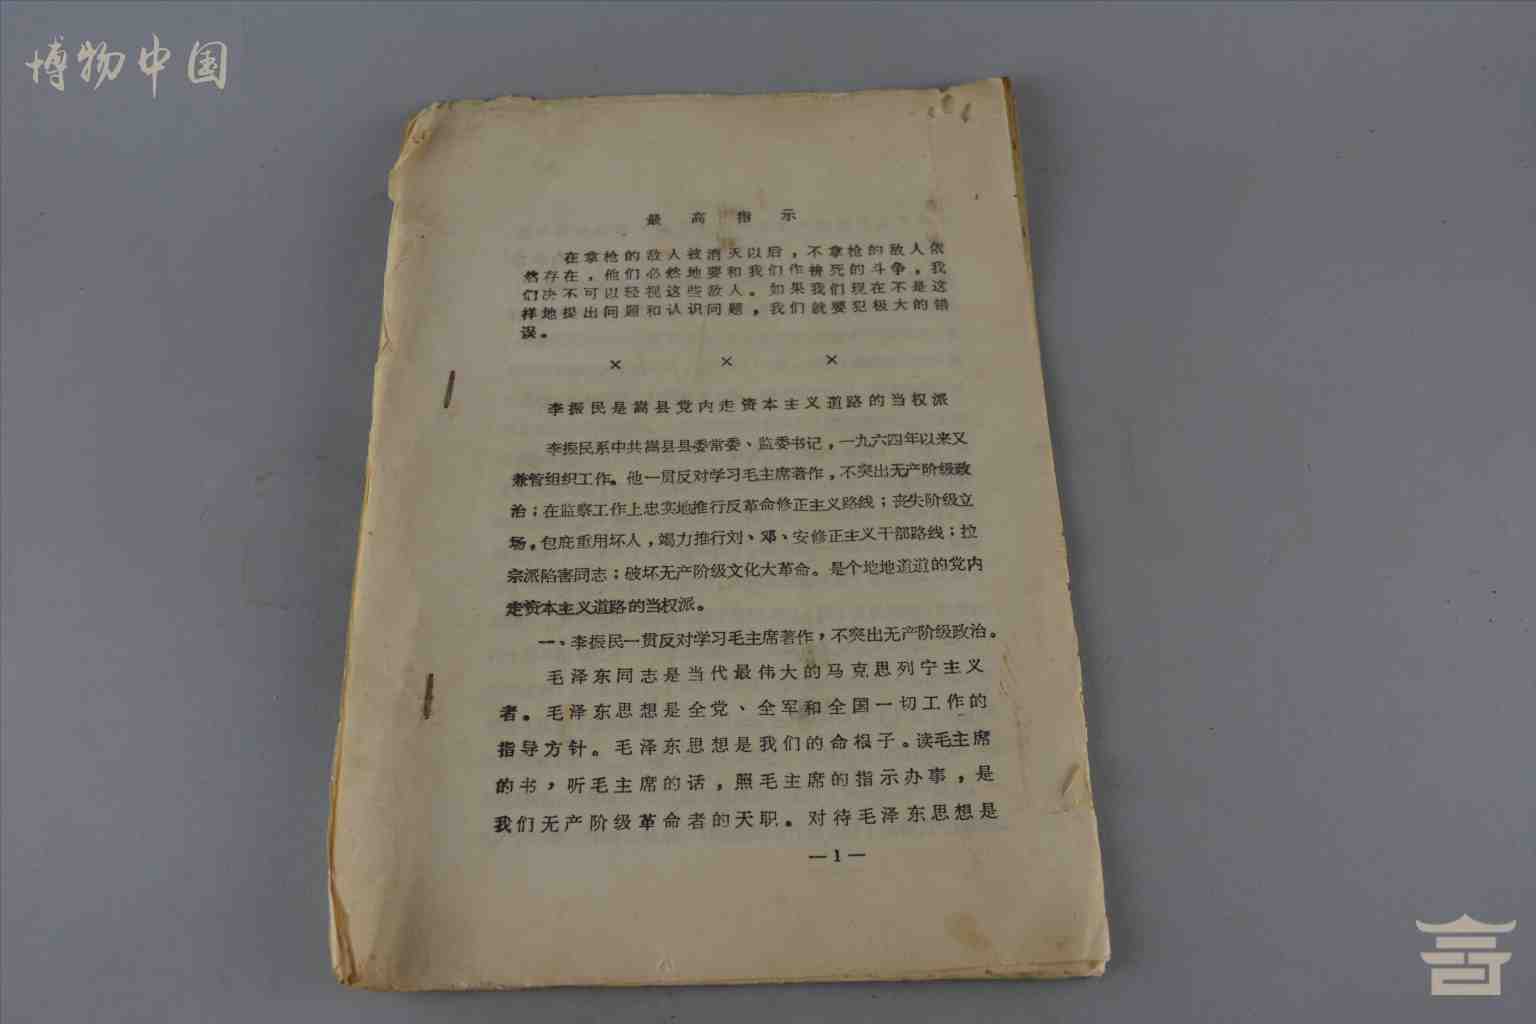 博物中国
最高指示
在拿枪的敌人被消灭以后，不拿枪的敌人依
然存在，他们必然地要和我们作拚死的斗争，我
们决不可以轻视这些敌人。如果我们现在不是这
样地提出问题和认识问题，我们就要犯极大的错
误。
× × ×
李振民是嵩县党内走资本主义道路的当权派
李振民系中共嵩县县委常委、监委书记，一九六四年以来又
兼管组织工作。他一贯反对学习毛主席著作，不突出无产阶级政
治；在监察工作上忠实地推行反革命修正主义路线；丧失阶级立
场，包庇重用坏人，竭力推行刘、邓、安修正主义干部路线；拉
宗派陷害同志；破坏无产阶级文化大革命。是个地地道道的党内
走资本主义道路的当权派。
一、李振民一贯反对学习毛主席著作，不突出无产阶级政治。
毛泽东同志是当代最伟大的马克思列宁主义
者。毛泽东思想是全党、全军和全国一切工作的
指导方针。毛泽东思想是我们的命根子。读毛主席
的书，听毛主席的话，照毛主席的指示办事，是
我们无产阶级革命者的天职。对待毛泽东思想是
—1—